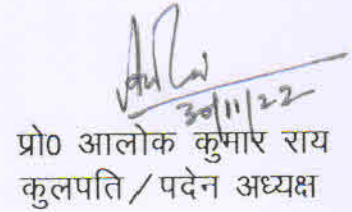 30/11/22
प्रो0 आलोक कुमार राय
कुलपति / पदेन अध्यक्ष